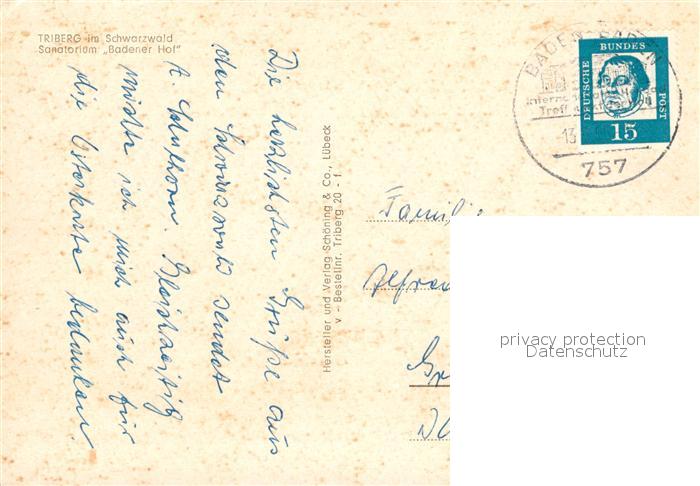 TRIBERG im Schwarzwald
Sanatorium „Badener Hof"
Die herzlichsten Grüße aus
den Schwarzwald sendet
Gleichzeitig
möchte ich mich auch für
die Osterkarte bedanken.
Hersteller und Verlag Schöning & Co., Lübeck
v – Bestellnr. Triberg 20 - f
BADEN-BADEN
Treff
13
757
DEUTSCHE BUNDES POST
15
Familie
privacy protection
Datenschutz